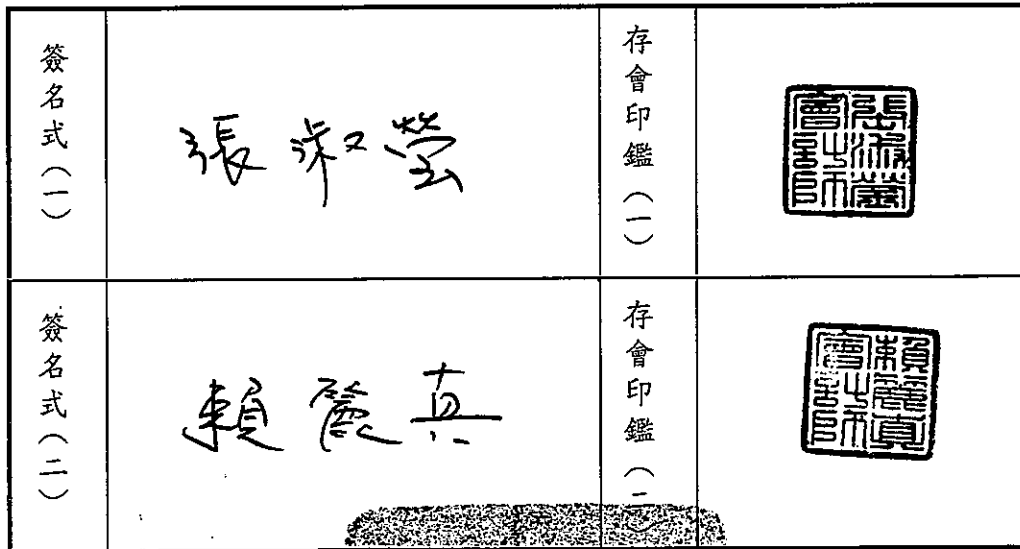 簽名式(一)
張淑瑩
存會印鑑(一)
張淑瑩會計師
簽名式(二)
賴麗真
存會印鑑(二)
賴麗真會計師